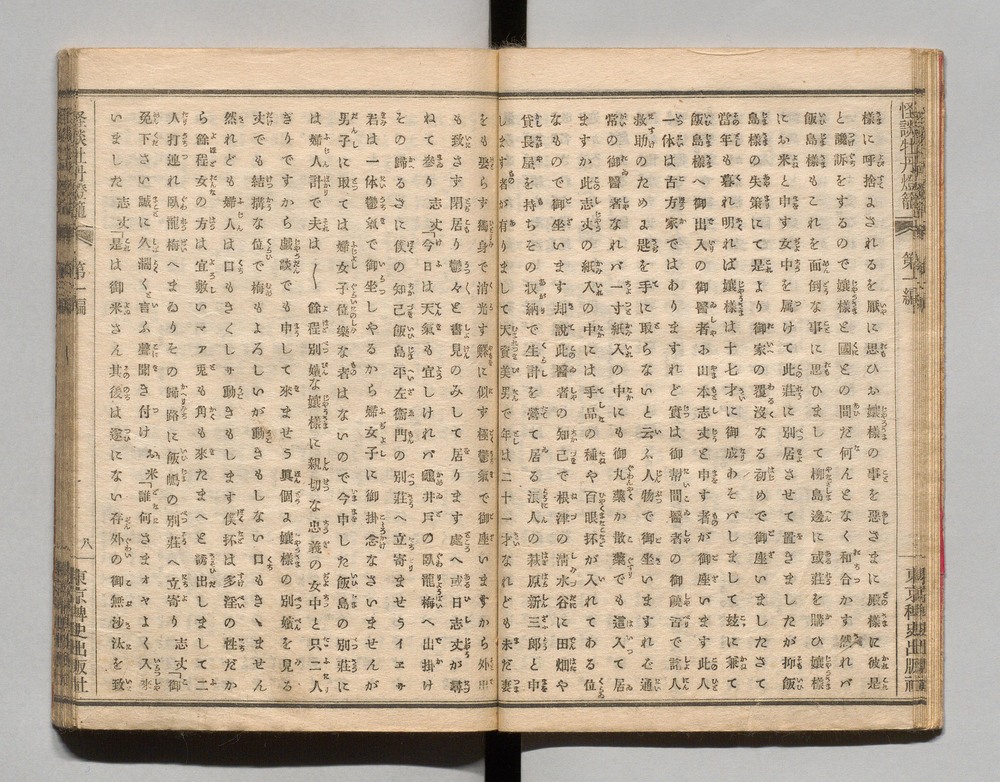 怪談牡丹燈籠
第一編
東京稗史出版社
樣に呼捨よされるを厭に思ひお孃樣の事を惡さまに殿樣に彼是
と讒訴をするので孃樣と國との間だ何んとなく和合かす然れバ
飯島樣もこれを面倒な事に思ひまして柳島邊に或莊を購ひ孃樣
にお米と申す女中を属けて此莊に別居させて置きましたが抑飯
島樣の失策にて是より御家の覆沒なる初めで御座いましたさて
當年も暮れ明れば孃樣は十七才に御成あそバしまして玆に兼て
飯島樣へ御出入の御醫者ふ山本志丈と申す者が御座います此人
一体は古方家ではありますれど實は幇間醫者の御饒舌で諸人
救助のためよ匙を手に取らないと云ふ人物で御坐いますれど通
常の御醫者なれバ一寸紙入の中にも御丸藥か散藥でも這入て居
ますが此志丈の紙入の中には手品の種や百眼抔が入れてある位
なもので御坐います却說此醫者の知己で根津の淸水谷に田畑や
貸長屋を持ちその收納で生計を營て居る浪人の萩原新三郎と申
します者が有りまして天資美男で年は二十一才なれども未だ妻
をも娶らす獨身で消光す鰥に似す極鬱氣で御座いますから外出
も致さす閉居り鬱々と書見のみして居ります處へ或日志丈が尋
ねて參り 志丈「今日は天氣も宜しけれバ龜井戸の臥龍梅へ出掛け
その歸るさに僕の知己飯島平左衞門の別莊へ立寄ませうイエサ
君は一体鬱氣で御坐しやるから婦女子に御掛念なさいませんが
男子に取ては婦女子位樂な者はないので今申した飯島の別莊に
は婦人計で夫は〱餘程別嬪な孃樣に親切な忠義の女中と只二人
ぎりですから戲談でも申して來ませう眞個よ孃樣の別嬪を見る
丈でも結搆な位で梅もよろしいが動きもしない口もきゝません
然れども婦人は口もきくしサ動きもします僕抔は多淫の性だか
ら餘程女の方は宜敷いマァ兎も角も來たまへと誘出しまして二
人打連れ臥龍梅へまゐりその歸路に飯嶋の別莊へ立寄り 志丈「御
免下さい誠に久濶くと言ふ聲聞き付け お米「誰何さまオヤよく入來
いました 志丈「是は御米さん其後は遂にない存外の御無沙汰を致
怪談牡丹燈籠
第一編
八
東京稗史出版社